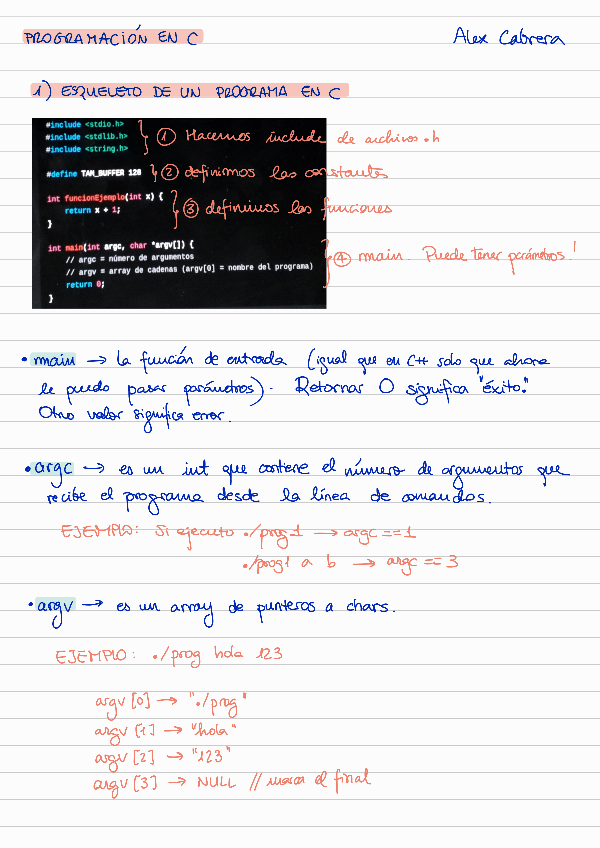 PROGRAMACIÓN EN C
Alex Cabrera
1) ESQUELETO DE UN PROGRAMA EN C
#include <stdio.h>
#include <stdlib.h>
#include <string.h>
① Hacemos include de archivos .h
#define TAM_BUFFER 128
② definimos las constantes
int funcionEjemplo(int x) {
return x + 1;
}
③ definimos las funciones
int main(int argc, char *argv[]) {
// argc = número de argumentos
// argv = array de cadenas (argv[0] = nombre del programa)
return 0;
}
④ main. Puede tener parámetros!
• main → la función de entrada (igual que en C++ solo que ahora
le puedo pasar parámetros). Retornar 0 significa "éxito."
Otro valor significa error.
• argc → es un int que contiene el número de argumentos que
recibe el programa desde la línea de comandos.
EJEMPLO: Si ejecuto ./prog1 → argc == 1
./prog1 a b → argc == 3
• argv → es un array de punteros a chars.
EJEMPLO: ./prog hola 123
argv [0] → "./prog"
argv [1] → "hola"
argv [2] → "123"
argv [3] → NULL // marca el final